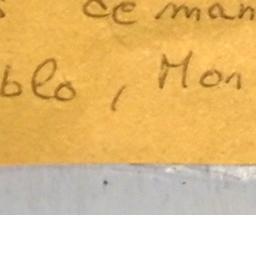 de man
blo, Mon